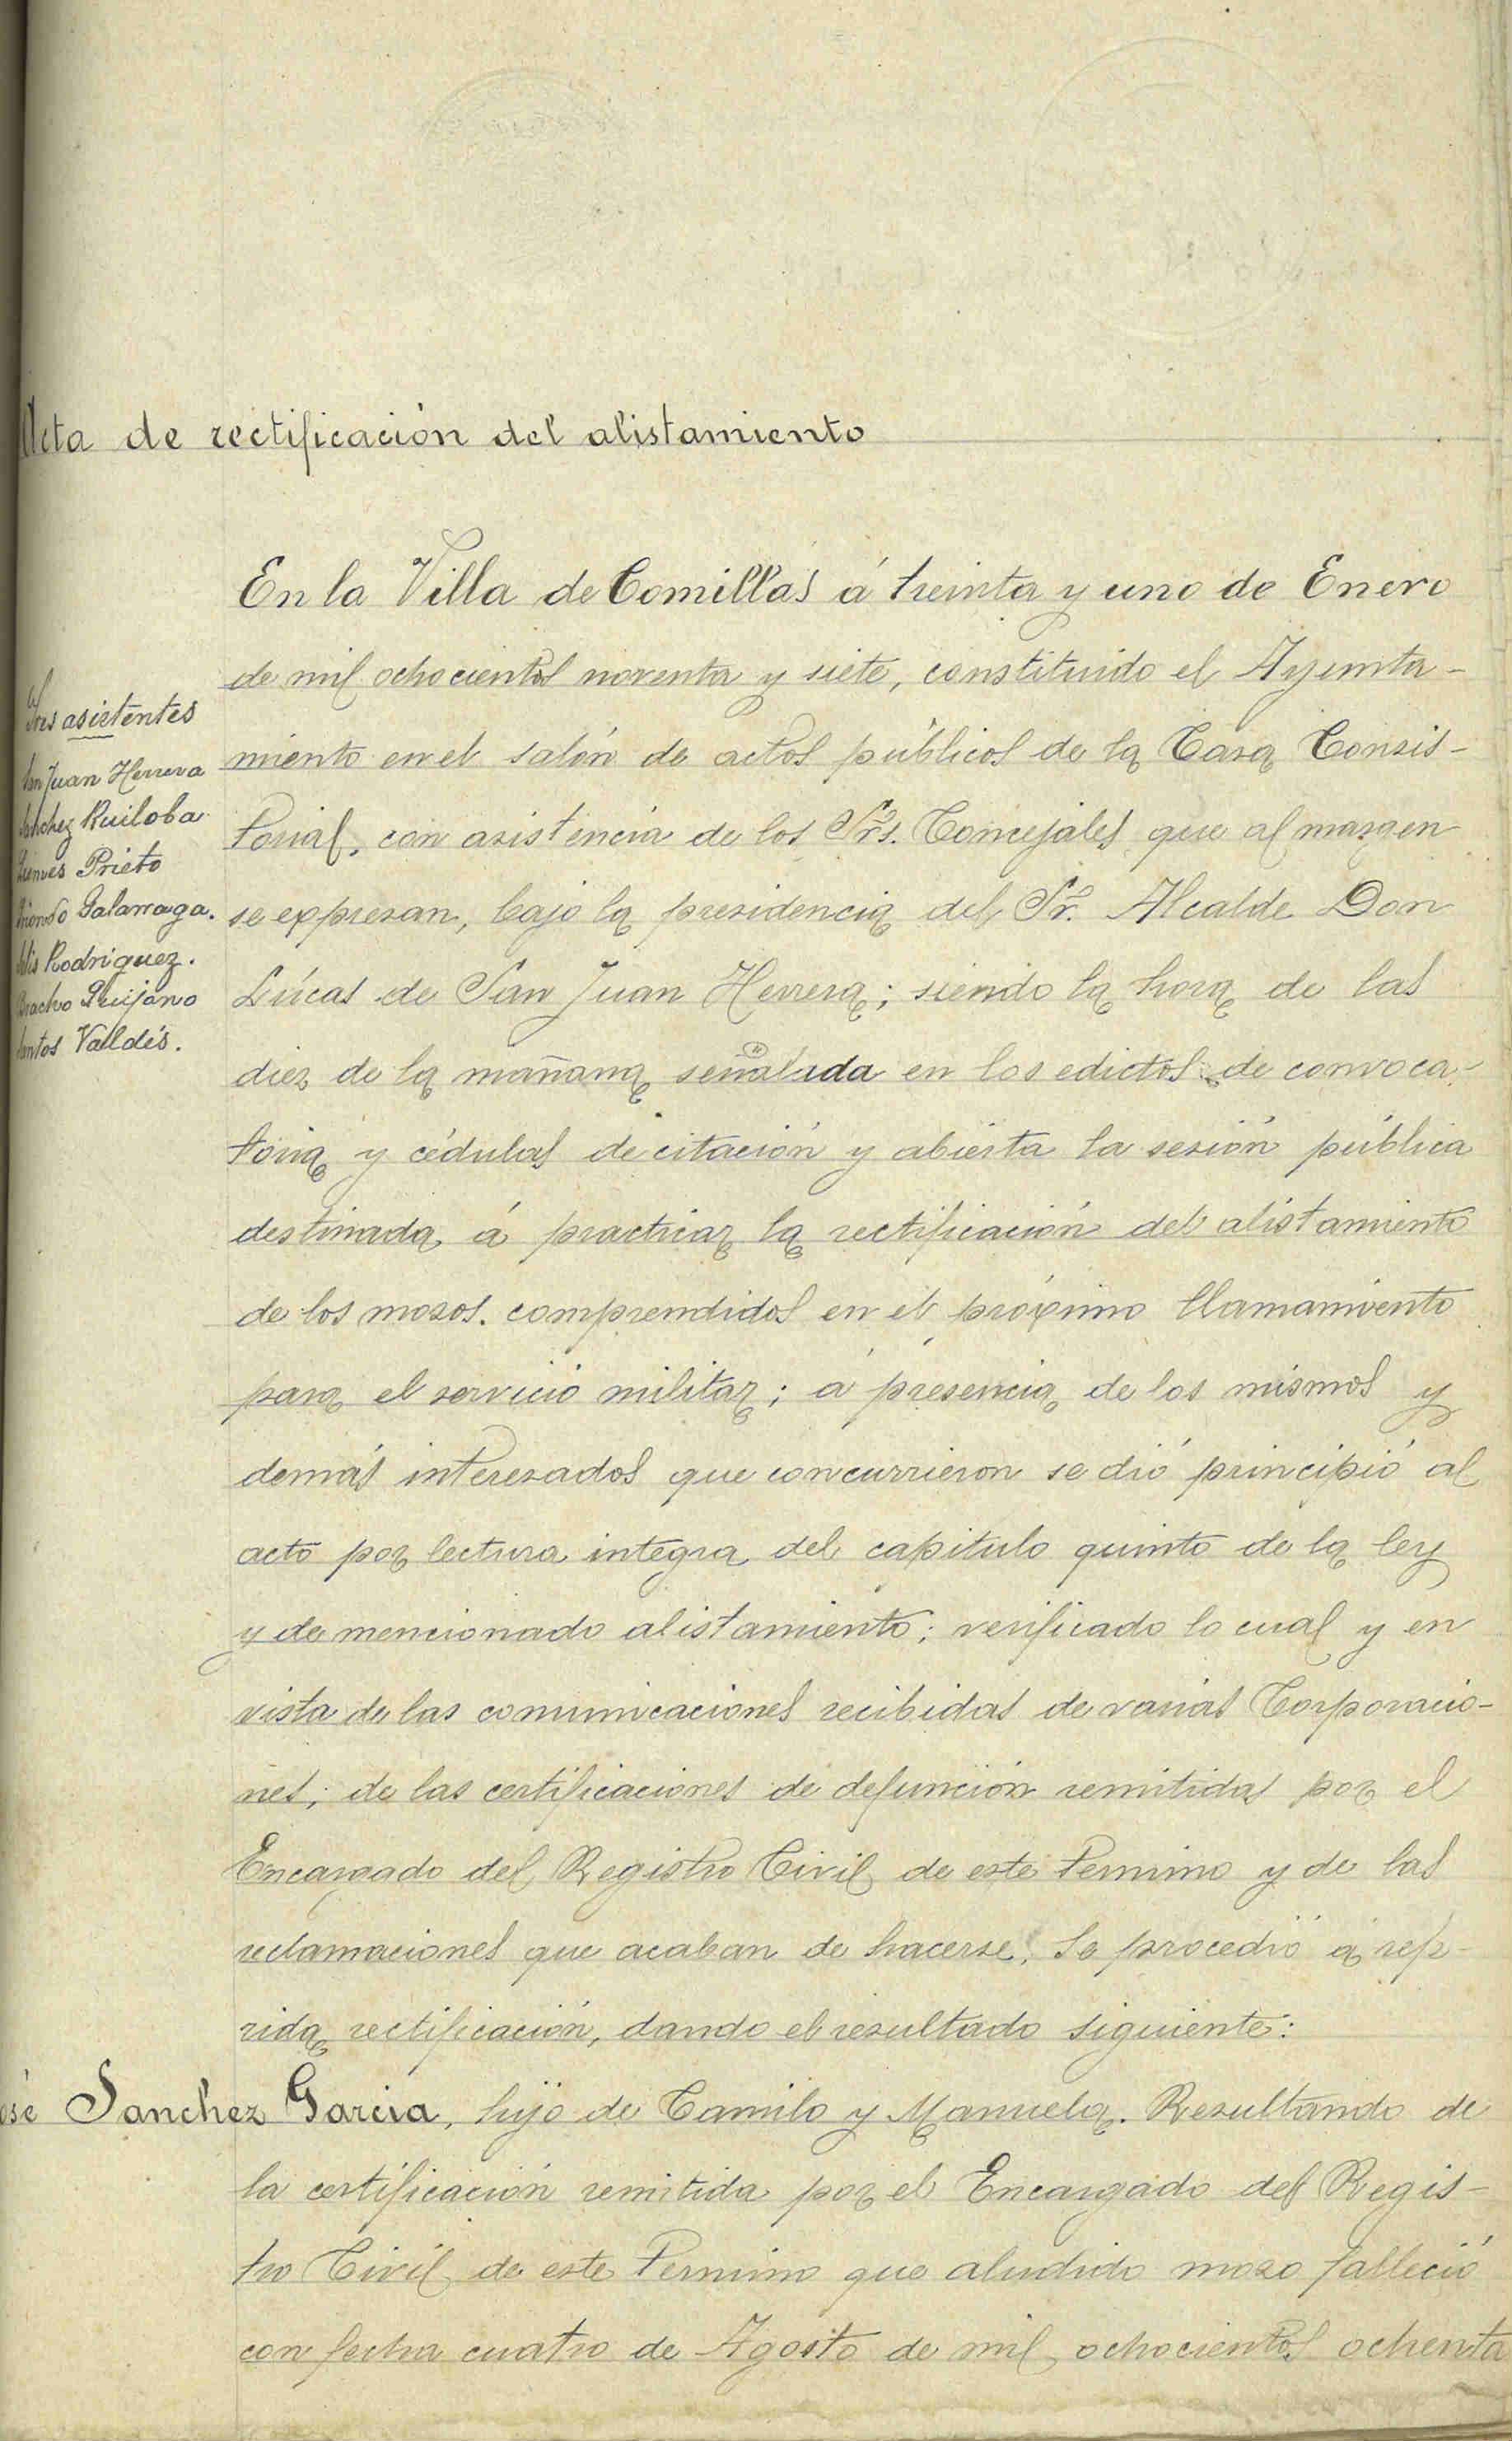 Acta de rectificación del alistamiento
Sres asistentes
San Juan Herrera
Sanchez Ruiloba
Prieto
Galarraga.
Rodriguez.
Quijano
Santos Valldés.
En la Villa de Comillas á treinta y uno de Enero
de mil ochocientos noventa y siete, constituido el Ayunta-
miento en el salón de actos públicos de la Casa Consis-
torial, con asistencia de los Srs. Concejales que al margen
se expresan, bajo la presidencia del Sr. Alcalde Don
Lúcas de San Juan Herrera; siendo la hora de las
diez de la mañana señalada en los edictos de convoca-
toria y cédulas de citación y abierta la sesión pública
destinada á practicar la rectificación del alistamiento
de los mozos. comprendidos en el próximo llamamiento
para el servicio militar; á presencia de los mismos y
demás interesados que concurrieron se dió principió al
acto por lectura integra del capitulo quinto de la ley
y de mencionado alistamiento; verificado lo cual y en
vista de las comunicaciones recibidas de varias Corporacio-
nes; de las certificaciones de defunción remitidas por el
Encargado del Registro Civil de este termino y de las
reclamaciones que acaban de hacerse, se procedió á refe-
rida rectificación, dando el resultado siguiente:
José Sanchez Garcia, hijo de Camilo y Manuela. Resultando de
la certificación remitida por el Encargado del Regis-
tro Civil de este termino que aludido mozo falleció
con fecha cuatro de Agosto de mil ochocientos ochenta